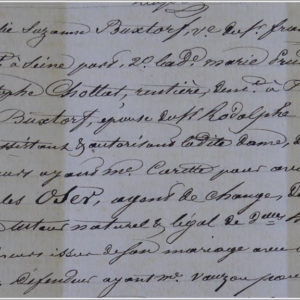 lie Suzanne Buxtorf, ve de f. fran
à Seine ppost, 2o. la de. marie
Chottat, rentière, demt. à
Buxtorf, épouse du Sr. Rodolphe
assistant & autorisant la dite dame, d
ayant me. Carette pour av
les Oser, agent de change, de
tuteur naturel & légal de Dlle
issus de son mariage avec
Défendeur ayant Me. Vauzon pour